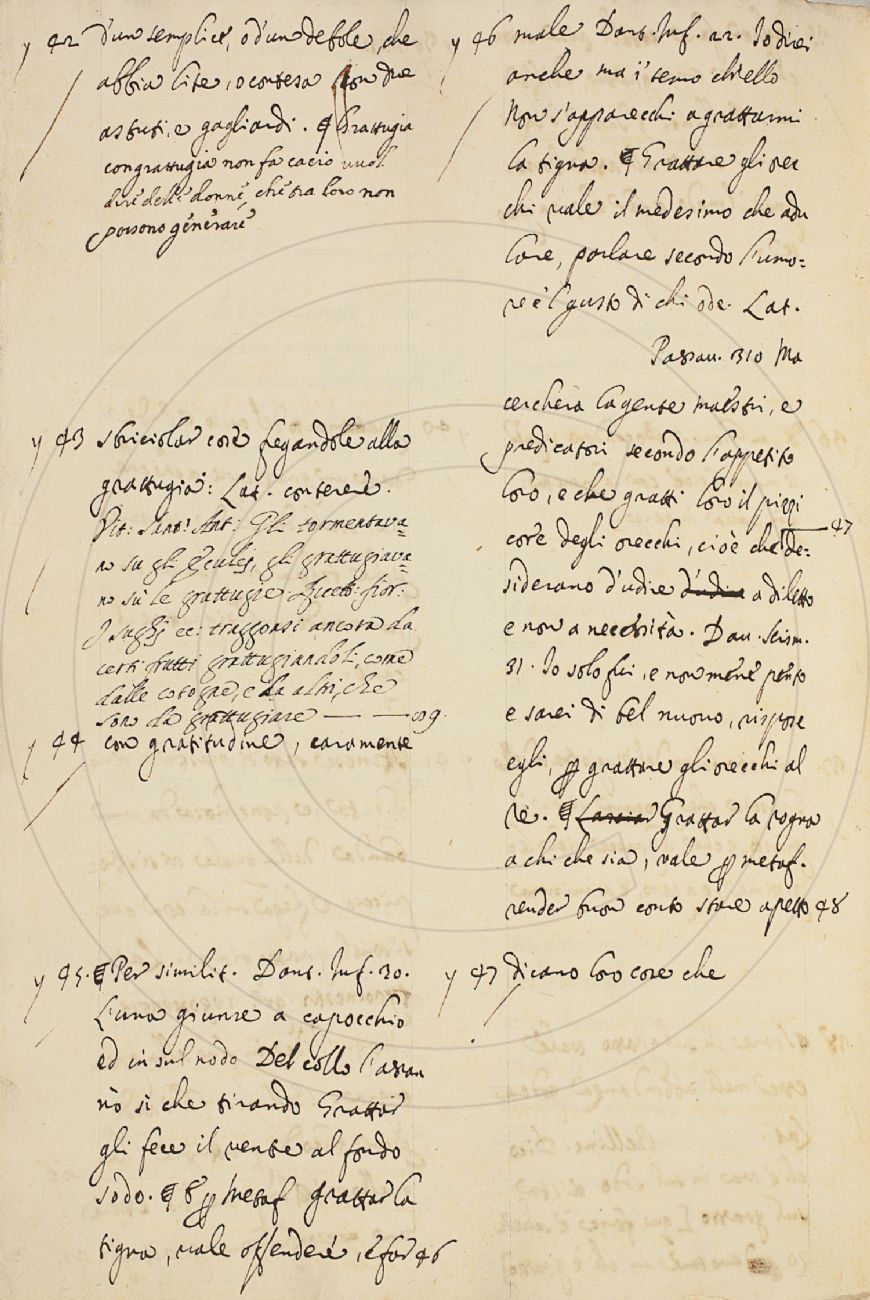 y 42 d'un semplice, o d'un debole, che
abbia lite, o contesa con due
astuti, e gagliardi. ¶ Grattugia
con grattugia non fa cacio vuol
dire delle donne, che tra loro non
possono generare
y 43 sbriciolar cose fregandole alla
grattugia: Lat. conterere.
Vit: Sant: Ant: Gli tormentava=
no su gli eculej, gli grattugiava=
no su le grattugie. Ricett: Fior:
I sughj ec: traggonsi ancora da
certi frutti grattugiandoli, come
dalle cotogne, e da altri, che
sono da grattugiare — —
y 44 con gratitudine, caramente
y 45. ¶ Per similit. Dant. Inf. 30.
L'una giunse a capocchio
ed in sul nodo Del collo l'assan
nò si che tirando Grattar
gli fece il ventre al fondo
sodo. ¶ E p metaf Grattar la
tigna, vale offendere, e far 46
y 46 male Dant. Inf. 22. Io direi
anche ma i' temo ch'ello
Non s'apparecchi a grattarmi
la tigna. ¶ Grattare gli orec
chi vale il medesimo che adu
lare, parlare secondo l'umo=
re e 'l gusto di chi ode. Lat.
Passau. 310 Ma
cercherà la gente maestri, e
predicatori secondo l'appetito
loro, e che gratti loro il pizzi
core degli orecchi, cioè che de= 47
siderano d'udire d'udire a diletto
e non a necessità. Dau. Scism.
31. Io solo fui, e non mene pento
e sarei di bel nuovo, rispose
egli, p grattare gli orecchi al
re. ¶ Lasciar Grattar la rogna
a chi che sia, vale p metaf.
render buon conto stare a petto 48
y 47 dicano loro cose che